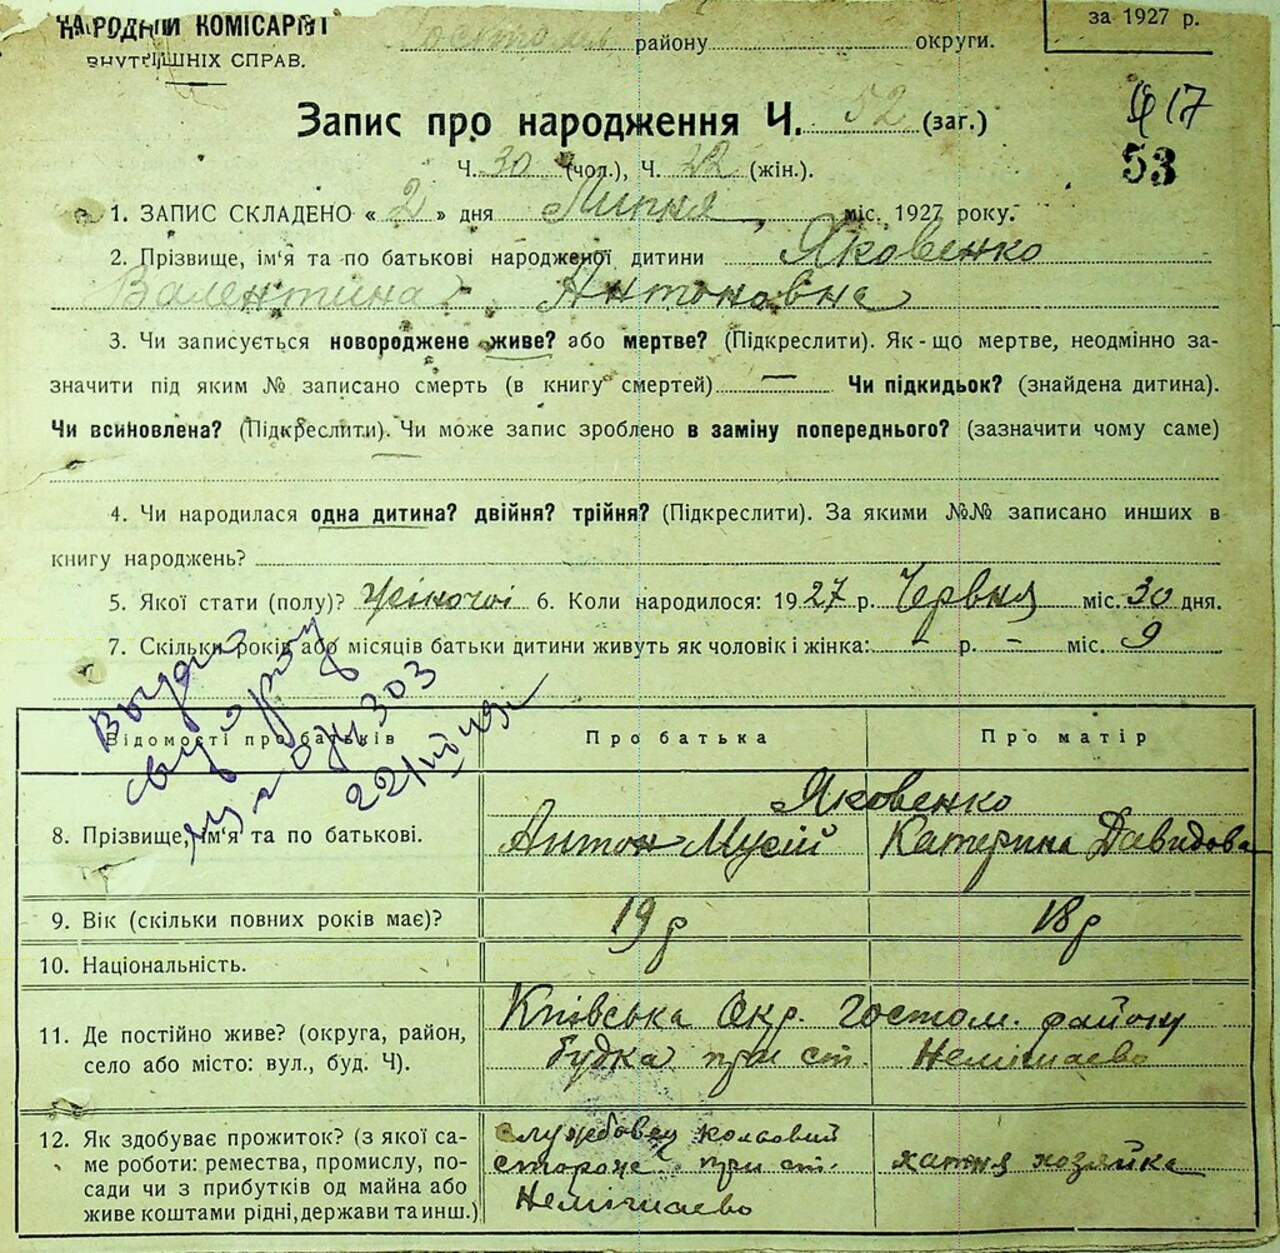 НАРОДНІЙ КОМІСАРІЯТ
ВНУТРІШНІХ СПРАВ.
району округи.
за 1927 р.
Запис про народження Ч. 52 (заг.)
17
53
Ч. 30 (чол.), Ч. 22 (жін.).
1. ЗАПИС СКЛАДЕНО « 2 » дня Липня міс. 1927 року.
2. Прізвище, ім'я та по батькові народженої дитини Яковенко
Валентина Антоновна
3. Чи записується новороджене живе? або мертве? (Підкреслити). Як-що мертве, неодмінно за-
значити під яким № записано смерть (в книгу смертей) — Чи підкидьок? (знайдена дитина).
Чи всиновлена? (Підкреслити). Чи може запис зроблено в заміну попереднього? (зазначити чому саме)
4. Чи народилася одна дитина? двійня? трійня? (Підкреслити). За якими №№ записано инших в
книгу народжень?
5. Якої стати (полу)? Жіночої 6. Коли народилося: 1927 р. Червня міс. 30 дня.
7. Скільки років або місяців батьки дитини живуть як чоловік і жінка: - р. - міс. 9
Відомості про батьків Про батька Про матір
303
8. Прізвище, ім'я та по батькові.
Яковенко
Антон Мусій Катерина Давидова
9. Вік (скільки повних років має)? 19 р 18 р
10. Національність.
11. Де постійно живе? (округа, район,
село або місто: вул., буд. Ч).
Київська Окр. Гостом. району
будка при ст. Немішаево
12. Як здобуває прожиток? (з якої са-
ме роботи: ремества, промислу, по-
сади чи з прибутків од майна або
живе коштами рідні, держави та инш.)
службовец
стороже при ст.
Немішаево
хатня хозяйка